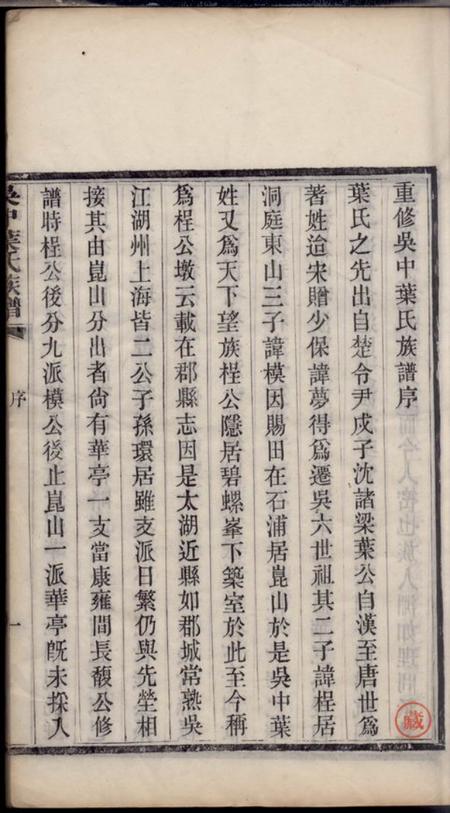 重修吳中葉氏族譜序
葉氏之先出自楚令尹戍子沈諸梁葉公自漢至唐世爲
著姓迨宋贈少保諱夢得爲遷吳六世祖其二子諱桯居
洞庭東山三子諱模因賜田在石浦居崑山於是吳中葉
姓又爲天下望族桯公隱居碧螺峯下築室於此至今稱
爲桯公墩云載在郡縣志因是太湖近縣如郡城常熟吳
江湖州上海皆二公子孫環居雖支派日繁仍與先塋相
接其由崑山分出者尙有華亭一支當康雍間長馥公修
譜時桯公後分九派模公後止崑山一派華亭旣未採入
吳中葉氏族譜
序
一
藏